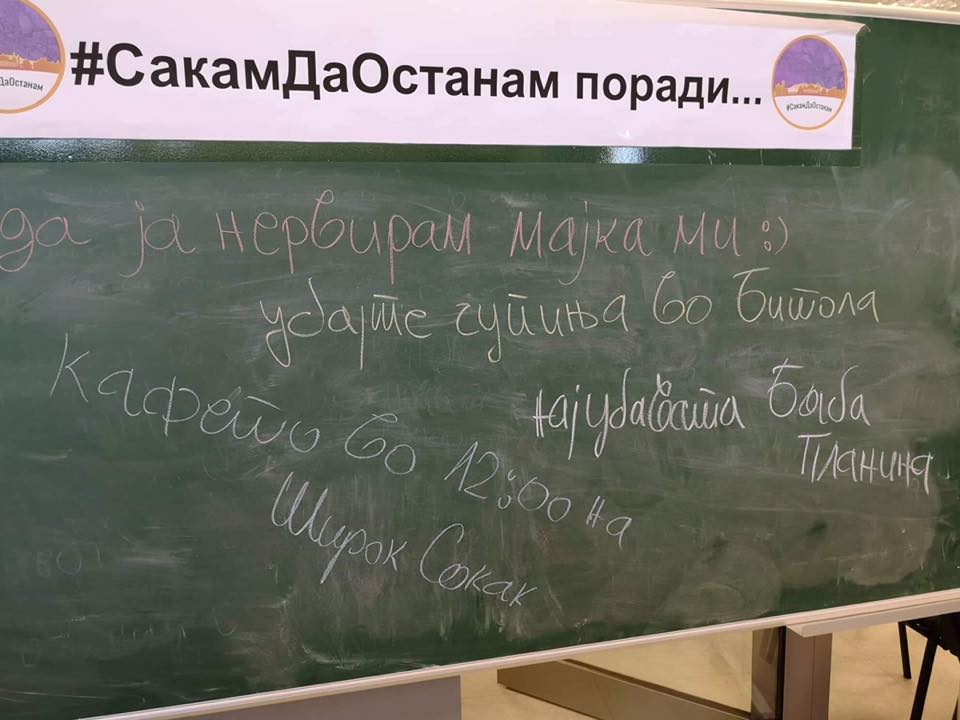 #СакамДаОстанам поради...
ДаОстанам
#СакамДаОстанам
да ја нервирам мајка ми :)
убајте гупиња во Битола
најубавата Баба
Планина
Кафето во 12:00 на
Широк Сокак